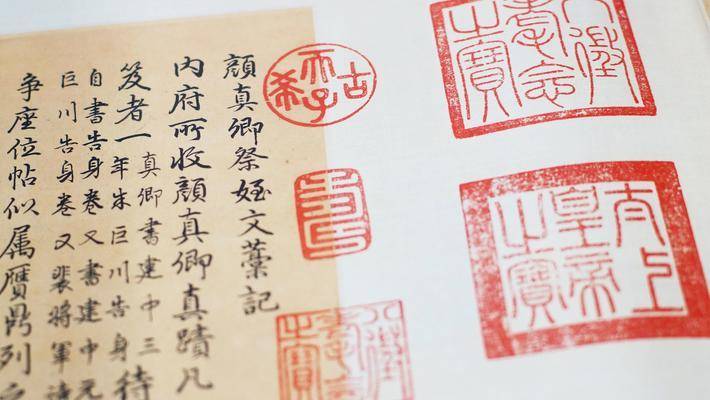 八徵耄念之寶
太上皇帝之寶
古希天子
壽
八徵耄念之寶
顔真卿祭姪文藁記
内府所收顔真卿真蹟凡
笈者一
真卿書建中三
年朱巨川告身
待
自書告身卷又書建中元
巨川告身卷又裴将軍詩
争座位帖似属贋鼎列之